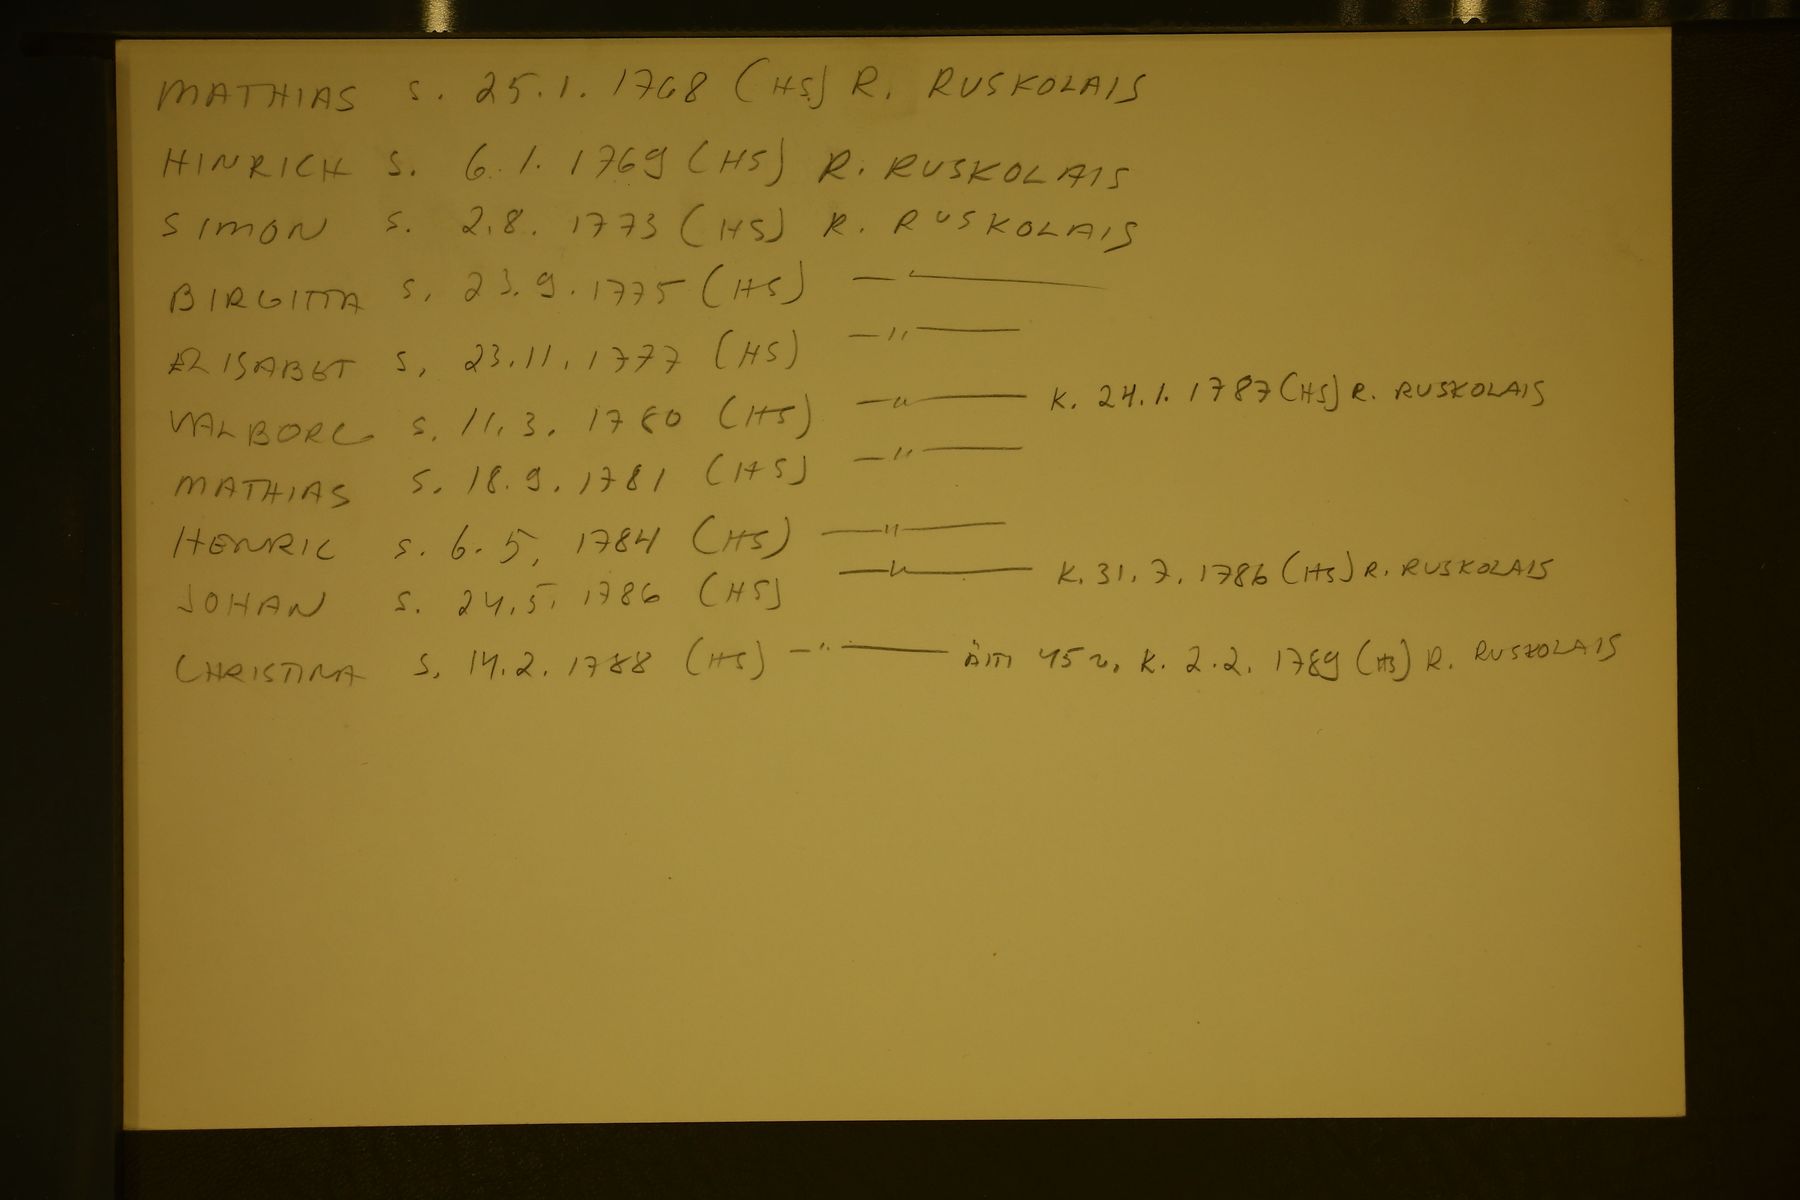 MATHIAS S. 25.1. 1768 (HS) R. RUSKOLAIS
HINRICH S. 6.1. 1769 (HS) R. RUSKOLAIS
SIMON S. 2.8. 1773 (HS) R. RUSKOLAIS
BIRGITTA S. 23.9. 1775 (HS) —"—
ELISABET S. 23.11. 1777 (HS) —"—
VALBORG S. 11.3. 1780 (HS) —"— K. 24.1. 1787 (HS) R. RUSKOLAIS
MATHIAS S. 18.9. 1781 (HS) —"—
HENRIC S. 6.5. 1784 (HS) —"—
JOHAN S. 24.5. 1786 (HS) —"— K. 31.7. 1786 (HS) R. RUSKOLAIS
CHRISTINA S. 14.2. 1788 (HS) —"— ÄITI 45 v. K. 2.2. 1789 (HS) R. RUSKOLAIS